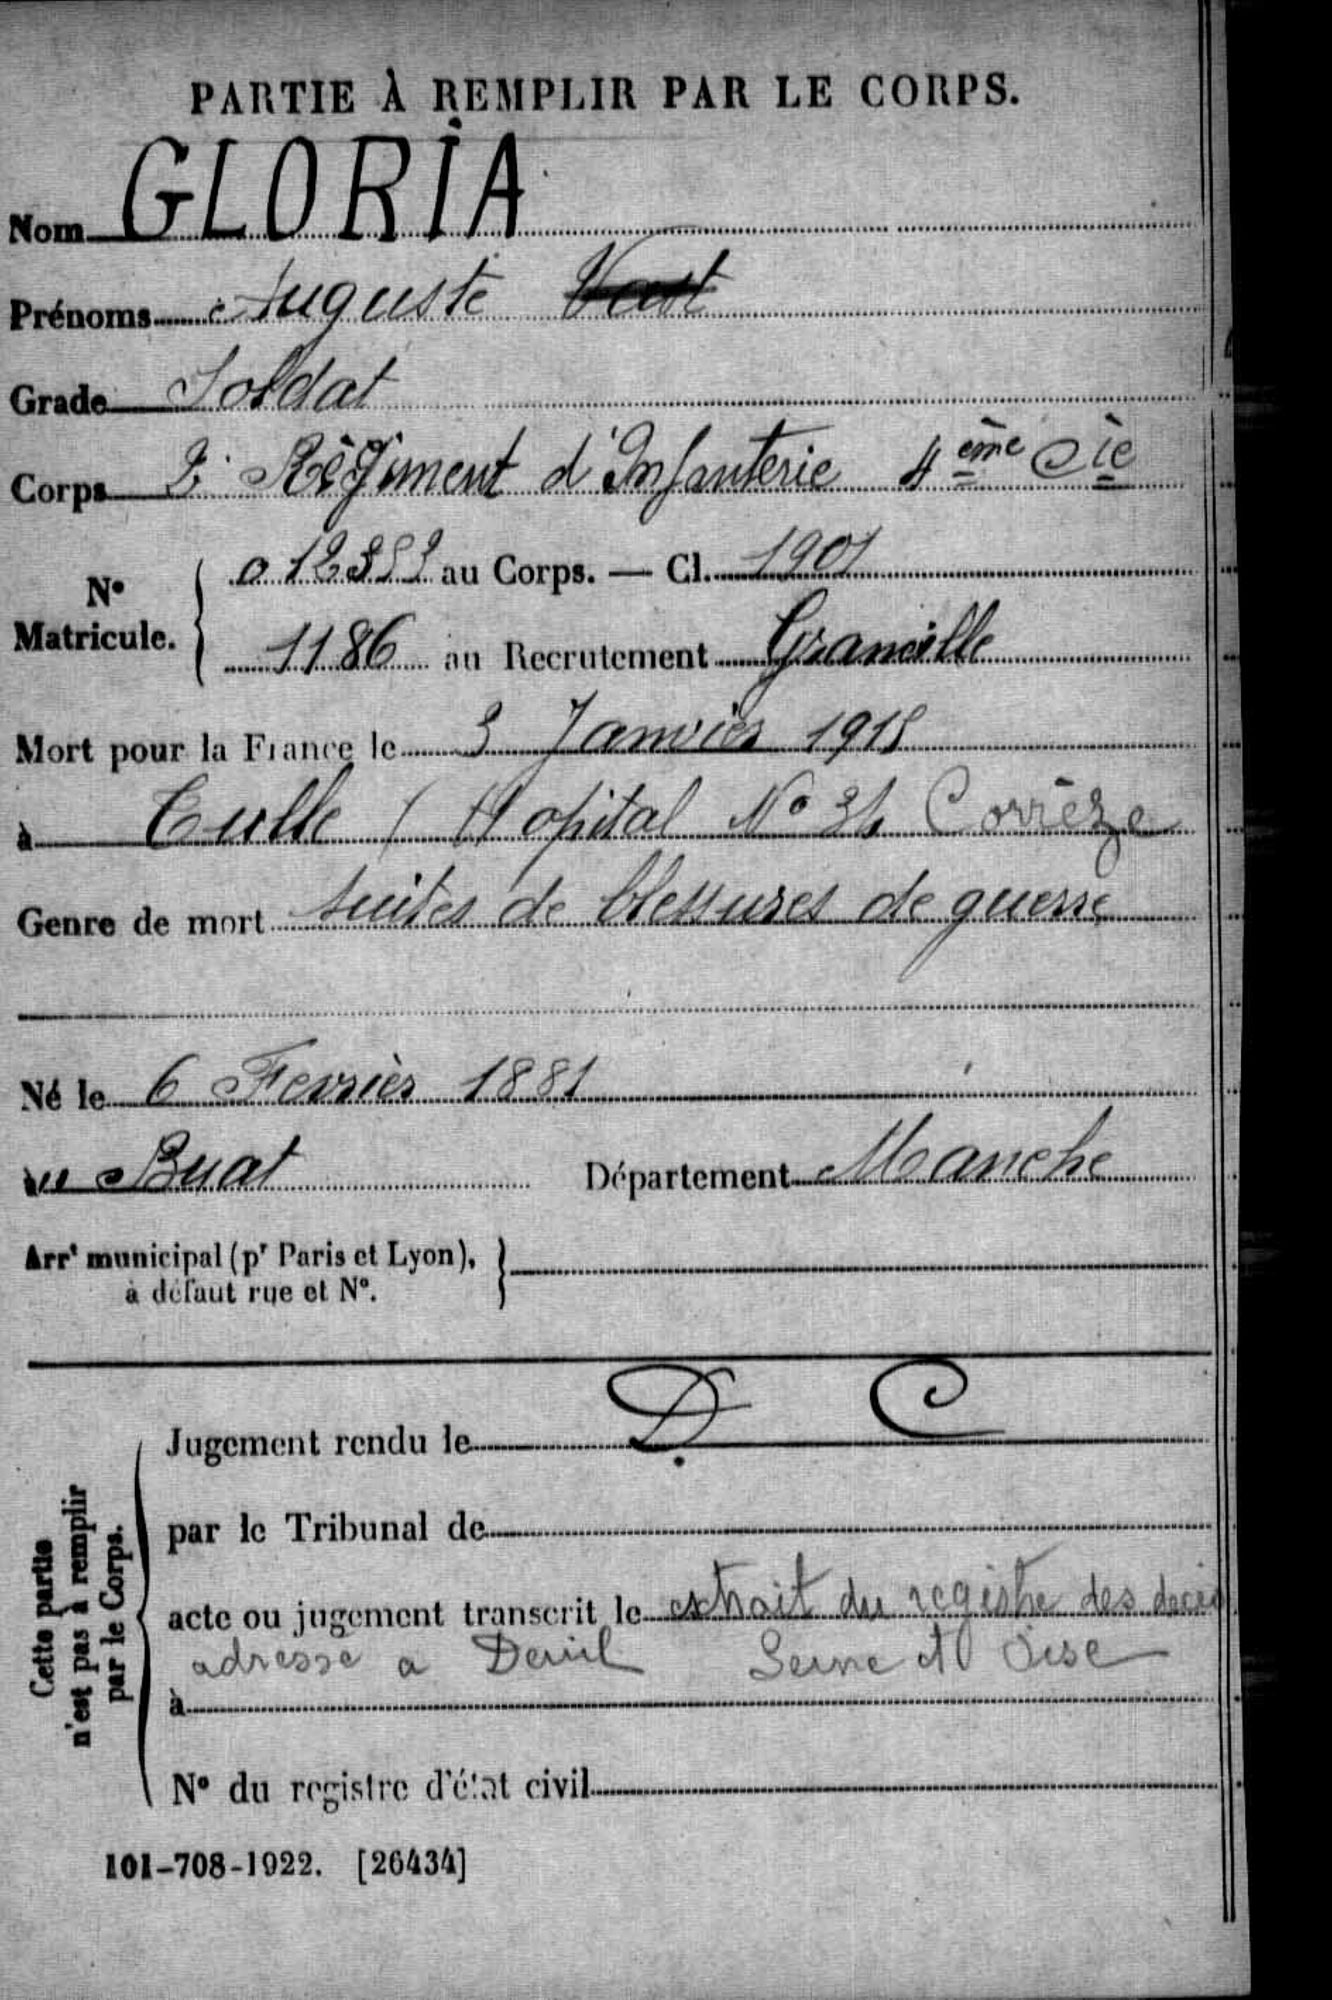 PARTIE À REMPLIR PAR LE CORPS.
Nom GLORIA
Prénoms Auguste
Grade Soldat
Corps 2e Régiment d'Infanterie 4ème Cie
N° Matricule. 
au Corps. — Cl. 1901
1186 au Recrutement Granville
Mort pour la France le 3 Janvier 1915
à Tulle / Hopital N° Corrèze
Genre de mort suites de blessures de guerre
Né le 6 Fevrier 1881
à Buat Département Manche
Arrt municipal (pr Paris et Lyon),
à défaut rue et N°.
Jugement rendu le D. C
par le Tribunal de
acte ou jugement transcrit le extrait du registre des deces
adresse a Deuil Seine et Oise
à
N° du registre d'état civil
Cette partie
n'est pas à remplir
par le Corps.
101-708-1922. [26434]